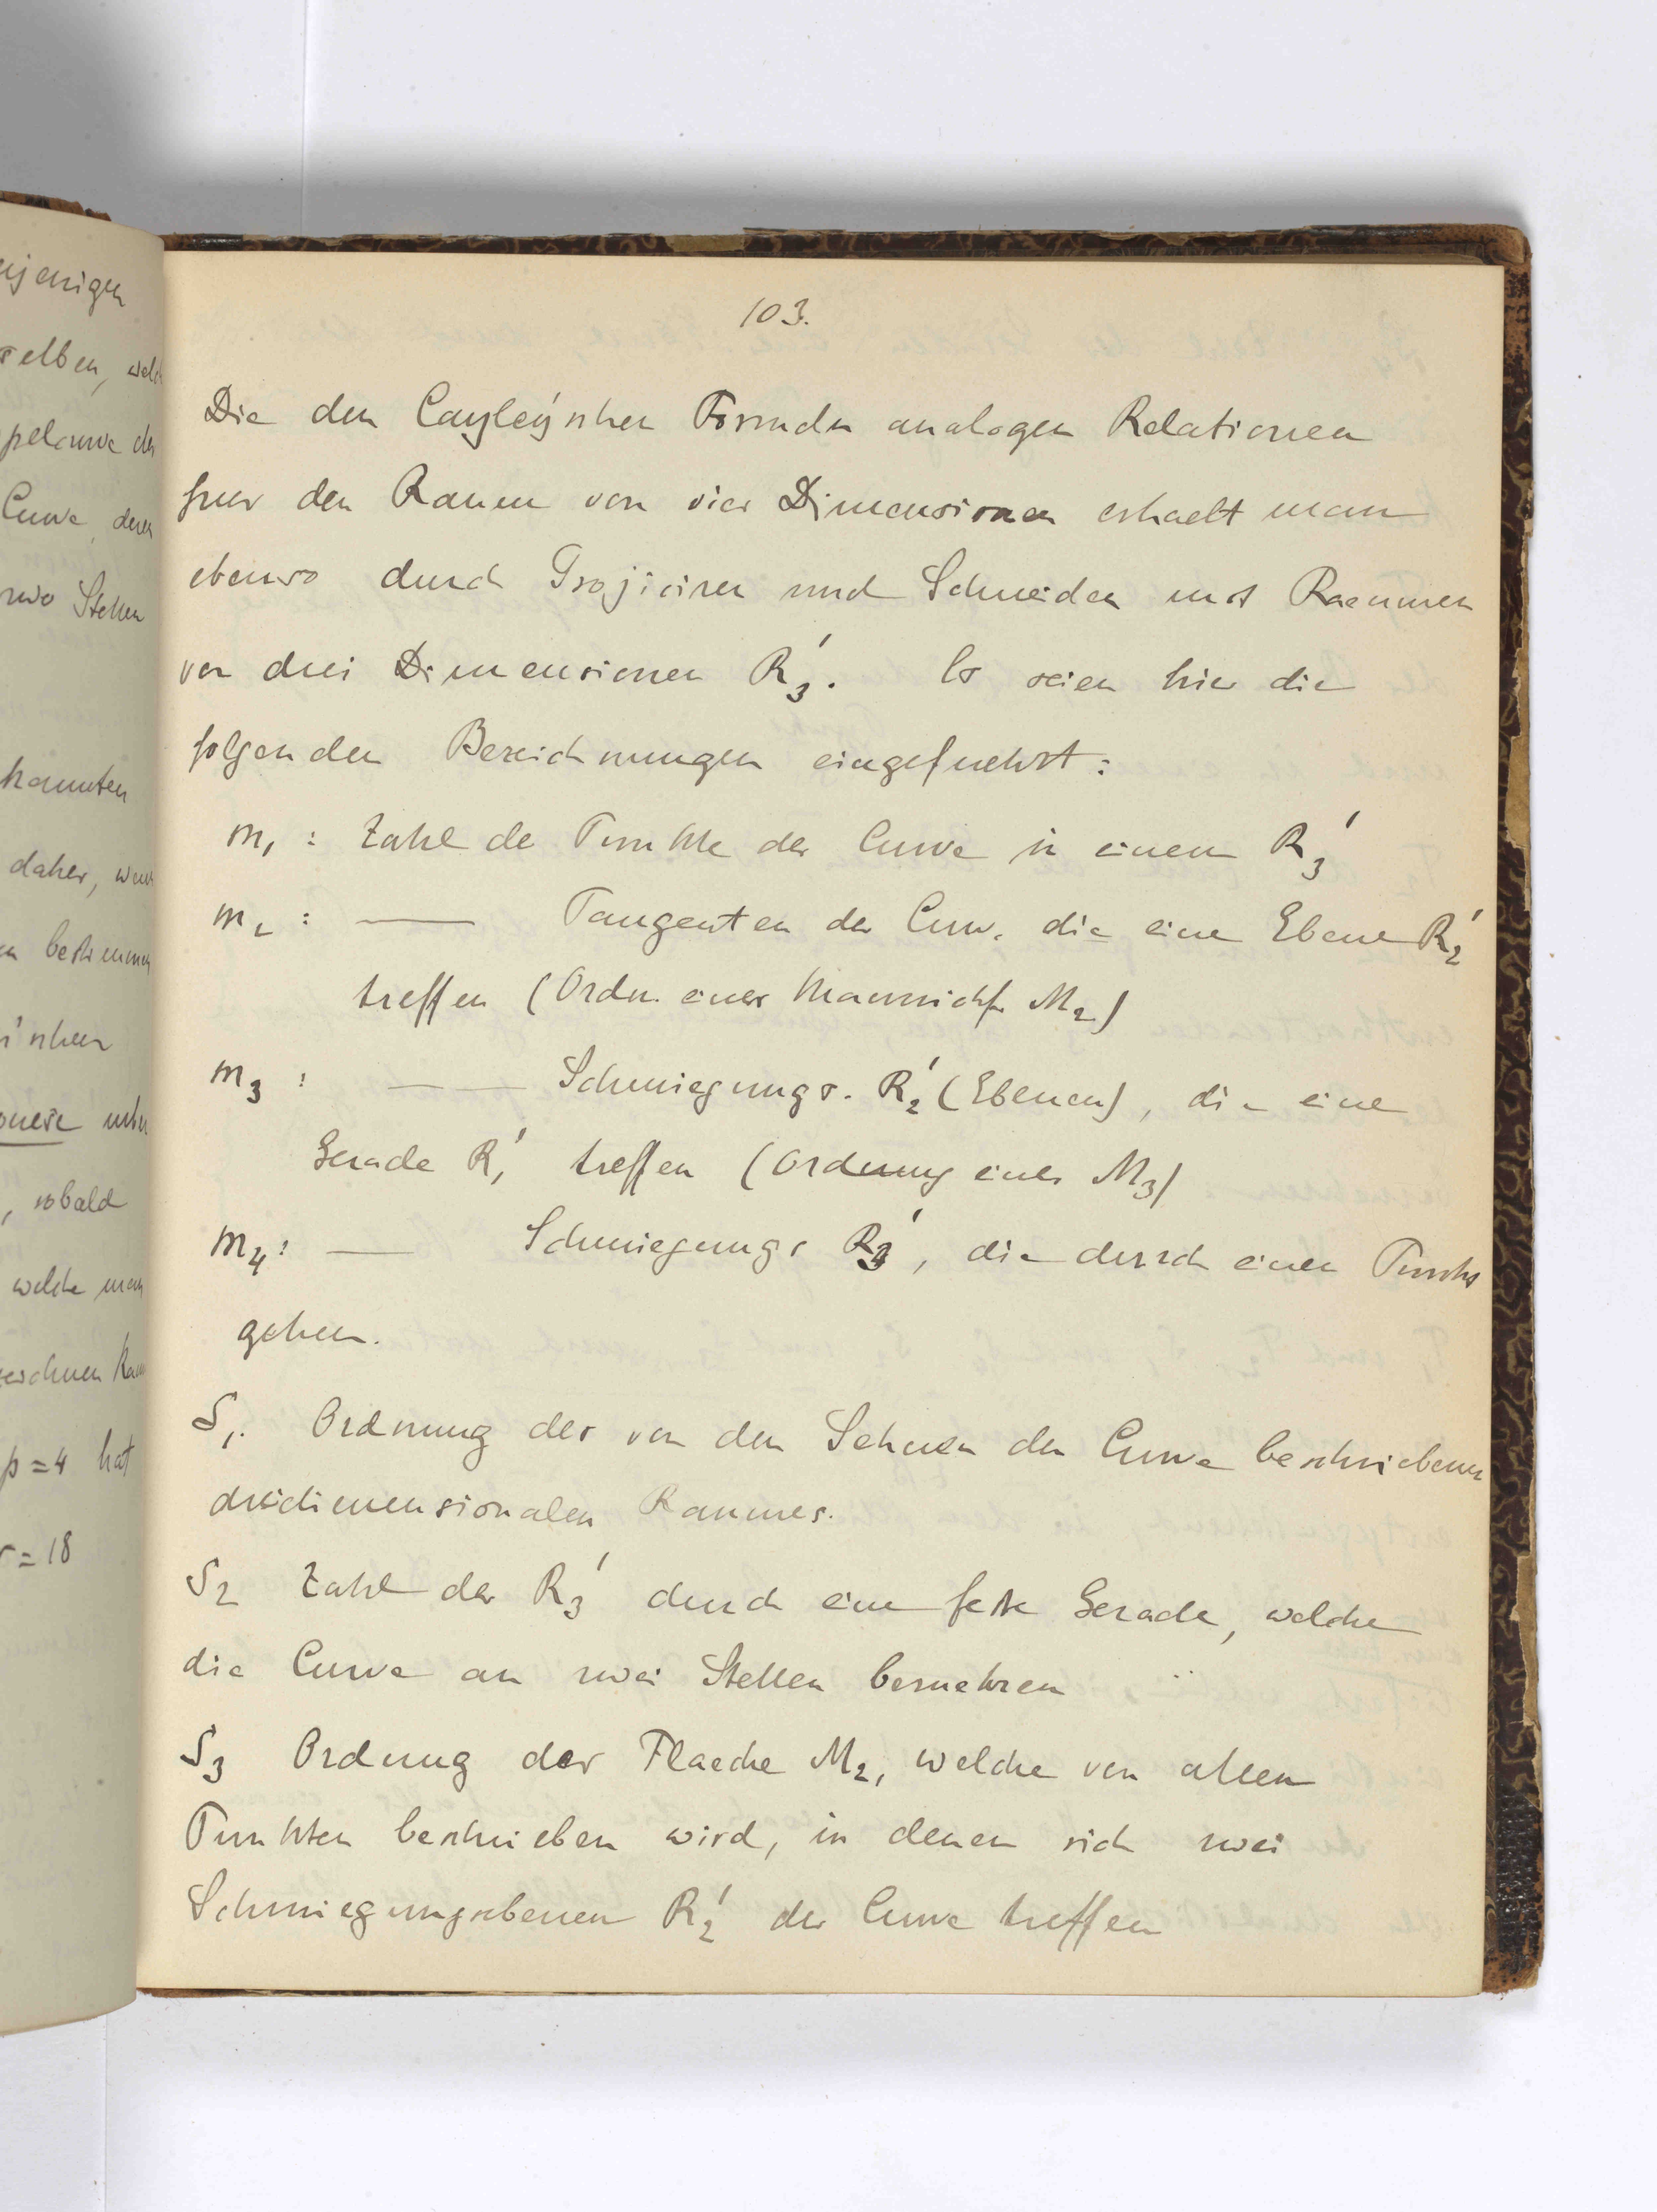 ejenigen
selben, welch
pelcurve der
Curve, deren
zwo Stellen
kannten
daher, wenn
n bestimmen
i'schen
onese unter
, sobald
welche man
p = 4 hat
r = 18
103.
Die den Cayley'schen Formeln analogen Relationen
fuer den Raum von vier Dimensionen erhaelt man
ebenso durch Projiciren und Schneiden mit Raeumen
von drei Dimensionen R'3. Es seien hier die
folgenden Bezeichnungen eingefuehrt:
m1 : Zahl de Punkte der Curve in einem R'3
m2 : — Tangenten der Curv. die eine Ebene R'2
treffen (Ordn. einer Mannichf. M2)
m3 : — — Schmiegungs. R'2 (Ebenen), die eine
Gerade R'1 treffen (Ordnung einer M3)
m4 : — Schmiegungs R'3, die durch einen Punkt
gehen.
S1. Ordnung des von den Sehnen der Curve beschriebenen
dreidimensionalen Raumes.
S2 Zahl der R'3 durch eine feste Gerade, welche
die Curve an zwei Stellen beruehren
S3 Ordnung der Flaeche M2, welche von allen
Punkten beschrieben wird, in denen sich zwei
Schmiegungsebenen R'2 der Curve treffen